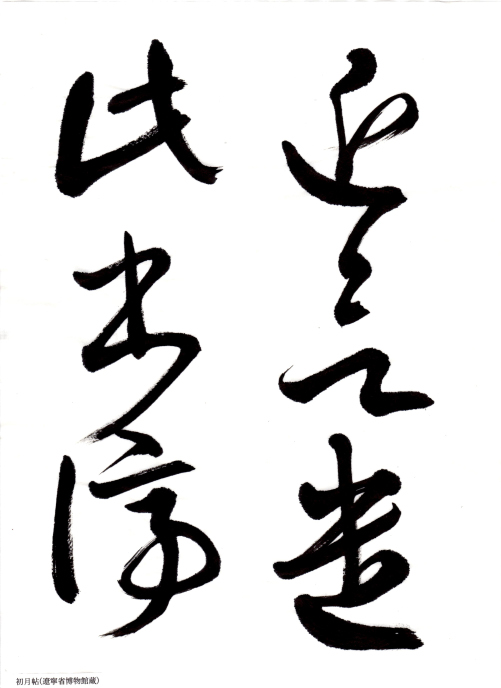 近欲遣
此書停
初月帖(遼寧省博物館蔵)